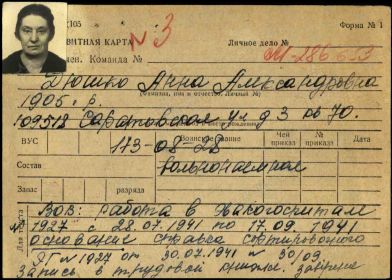 105 Форма № 1
ВИТНАЯ КАРТА № 3 Личное дело №
чен. Команда № М-286653
Дюшко Анна Александровна
1905 г. р. (Фамилия, имя и отчество. Личный №)
109518 Саратовская ул д 3 кв 70.
173-08-28
ВУС Воинское звание Чей приказ № приказа Дата
Состав вольнонаемная
Запас разряда
В.О.В: работа в эвакогоспитале
№ 1927 с 28.07.1941 по 17.09.1941
основание справка
ЭГ № 1927 от 30.07.1941 № 30/09.
Запись в трудовой книжке